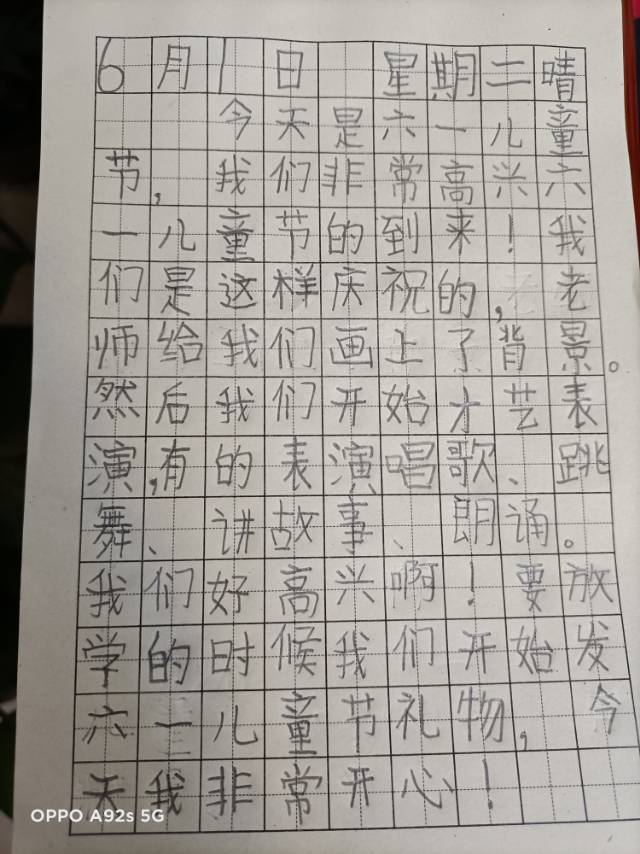 6月1日 星期二晴
今天是六一儿童
节，我们非常高兴六
一儿童节的到来！我
们是这样庆祝的，老
师给我们画上了背景。
然后我们开始才艺表
演，有的表演唱歌、跳
舞、讲故事、朗诵。
我们好高兴啊！要放
学的时候我们开始发
六一儿童节礼物，今
天我非常开心！
OPPO A92s 5G